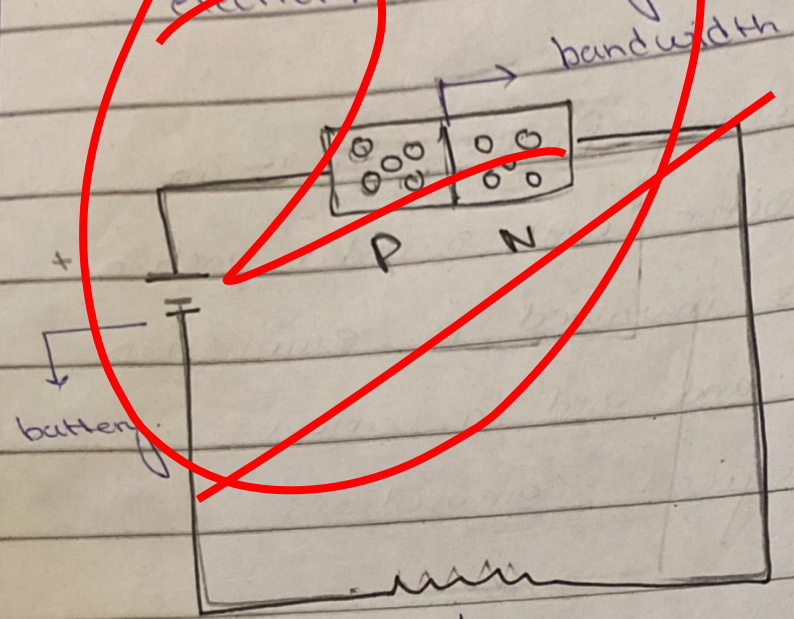 bandwidth
P N
+
battery